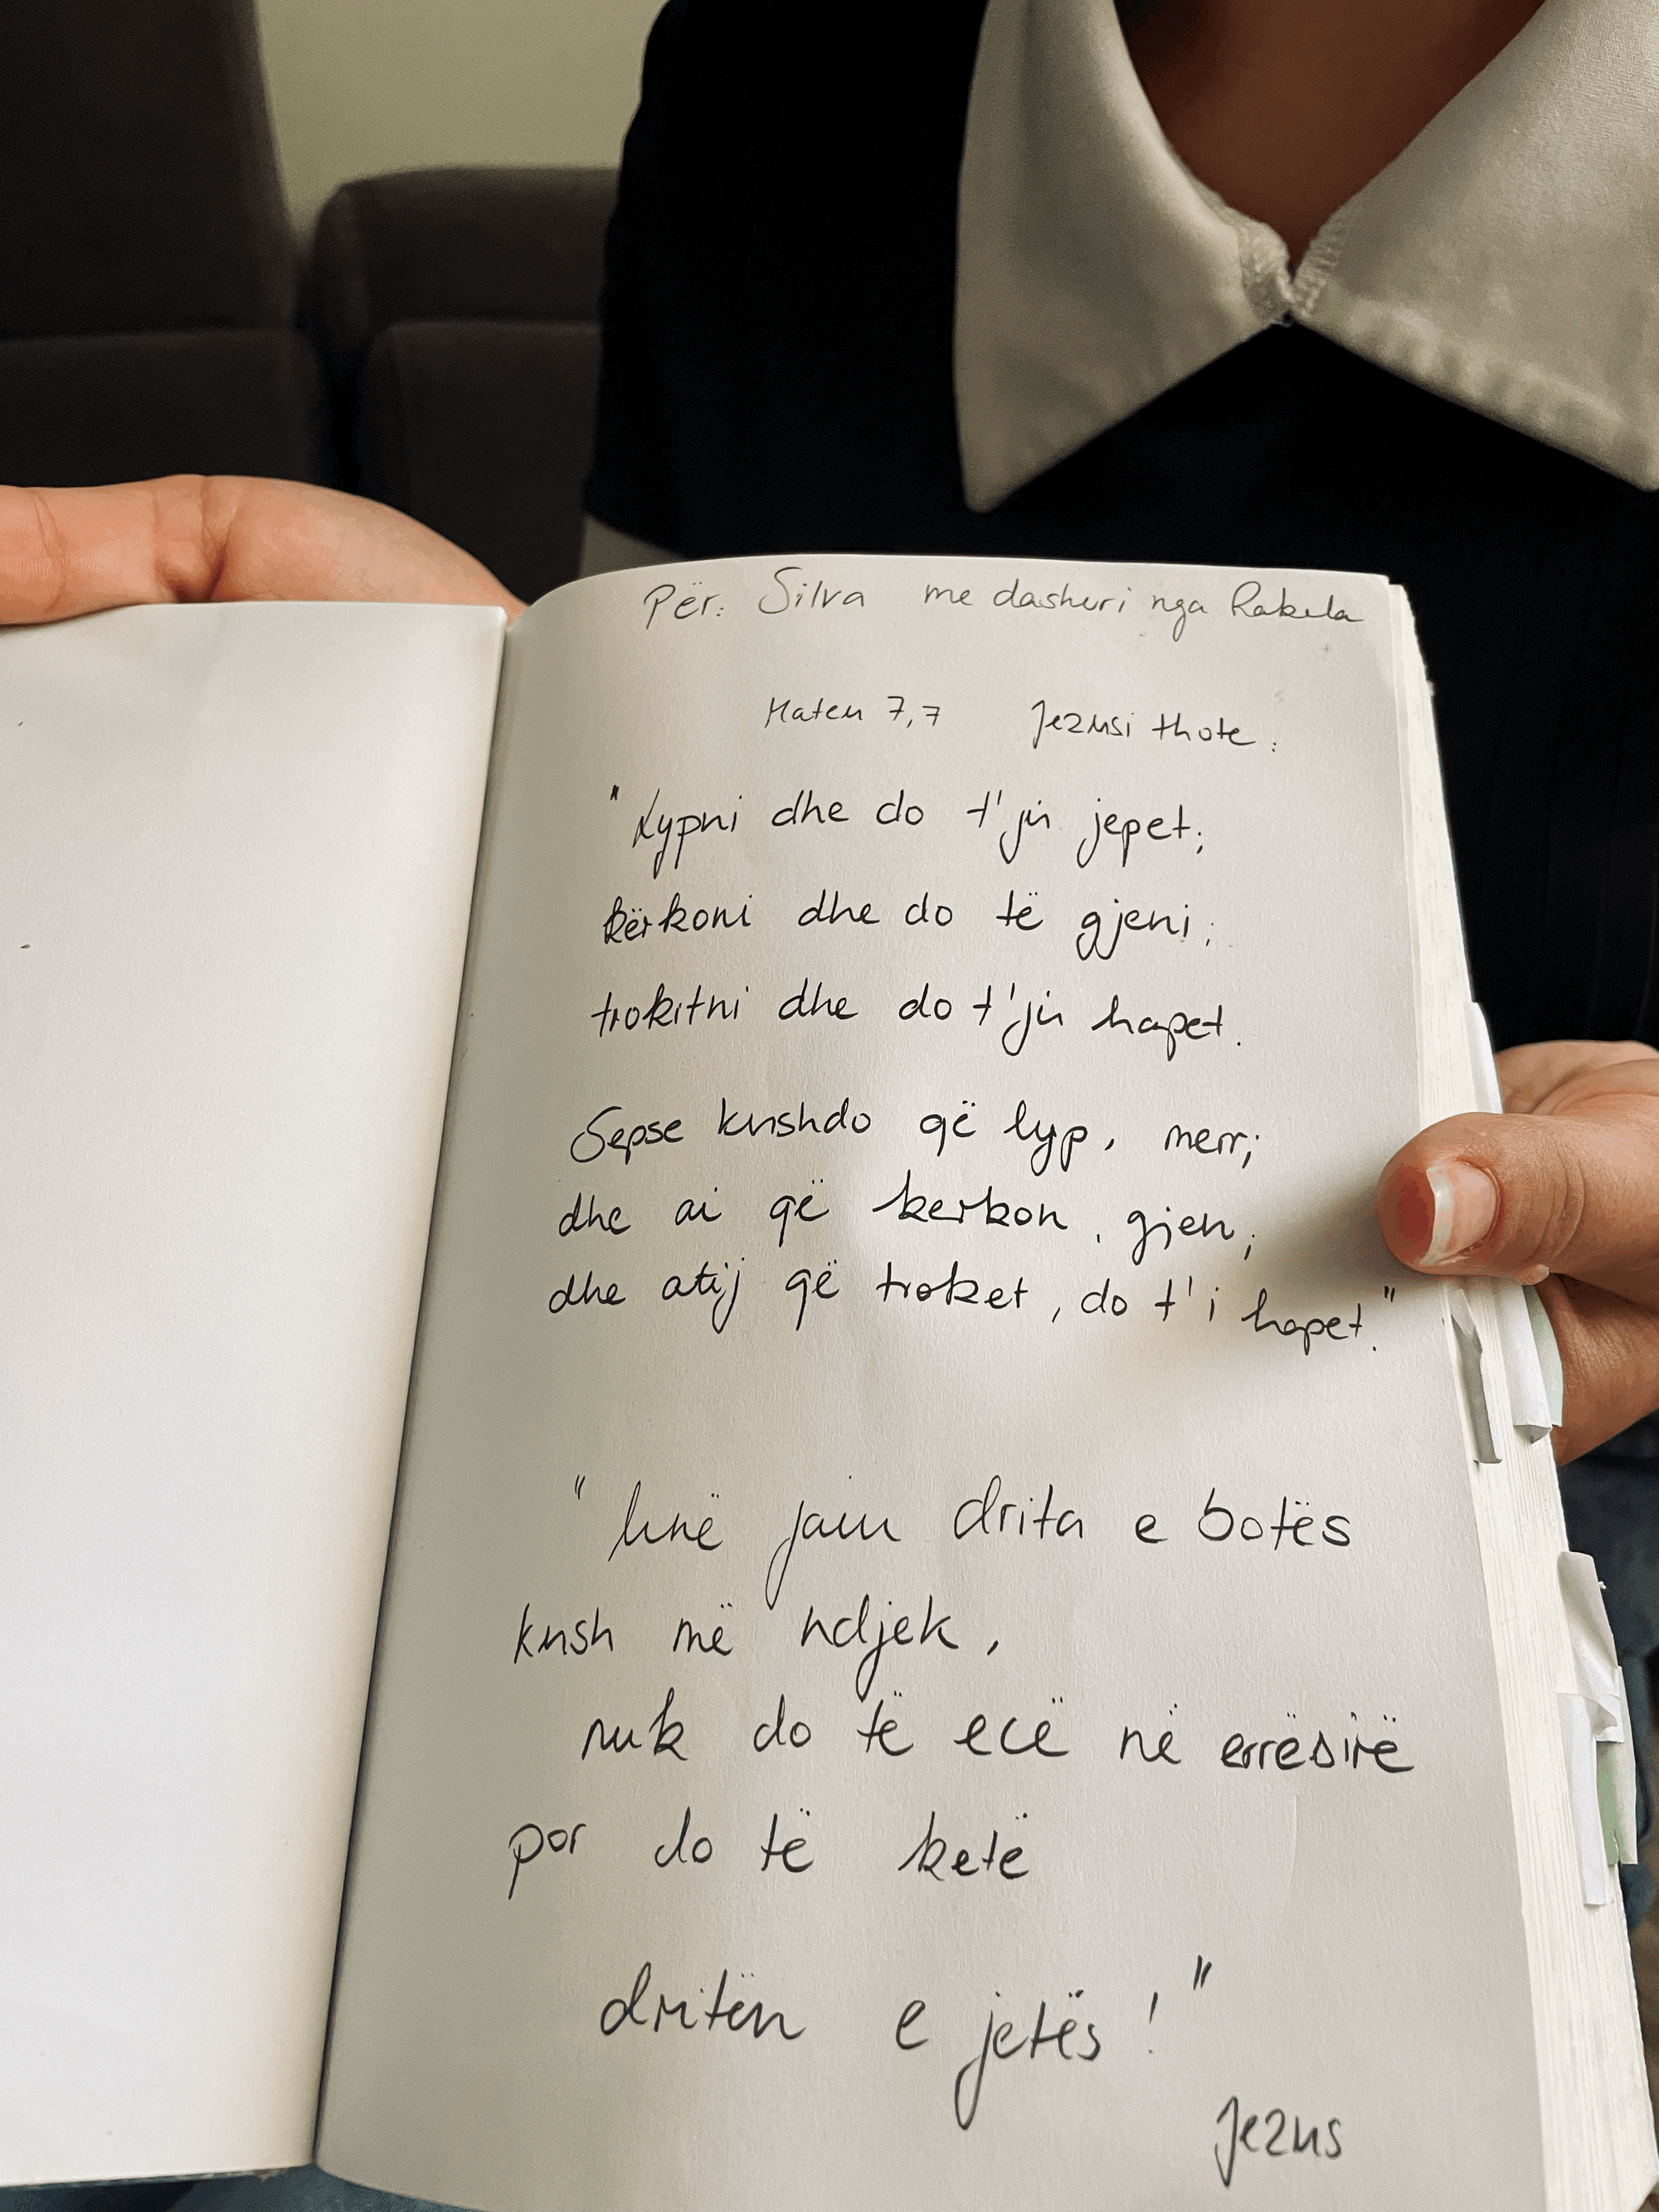 Për: Silva me dashuri nga Rakela
Mateu 7,7 Jezusi thote:
"Lypni dhe do t'ju jepet;
kërkoni dhe do të gjeni;
trokitni dhe do t'ju hapet.
Sepse kushdo që lyp, merr;
dhe ai që kerkon, gjen;
dhe atij që troket, do t'i hapet."
"Unë jam drita e botës
kush më ndjek,
nuk do të ecë në errësirë
por do të ketë
dritën e jetës!"
Jezus